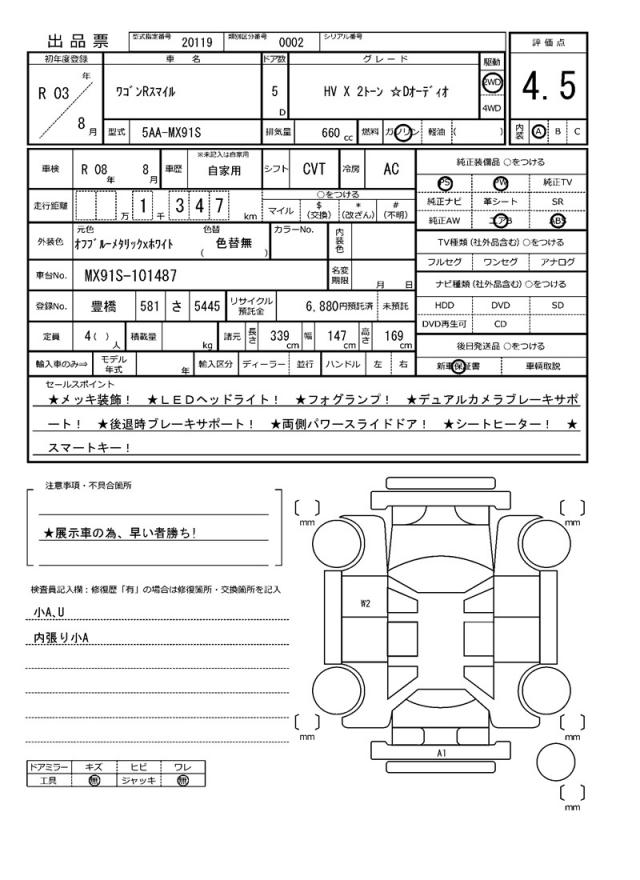 出品票 型式指定番号 20119 類別区分番号 0002 シリアル番号
初年度登録 車名 ドア数 グレード 駆動 評価点
R 03 年 8 月 ワゴンRスマイル 5 D HV X 2トーン ☆Dオーディオ 2WD 4WD 4.5
型式 5AA-MX91S 排気量 660 cc 燃料 ガソリン 軽油 ( ) 内装 A B C
車検 R 08 年 8 月 車歴 ※未記入は自家用 自家用 シフト CVT 冷房 AC 純正装備品 ○をつける
PS PW 純正TV
走行距離 万 1 千 3 4 7 km ○をつける マイル $ (交換) * (改ざん) # (不明) 純正ナビ 革シート SR
純正AW エアB ABS
外装色 元色 オフブルーメタリックxホワイト 色替 ( 色替無 ) カラーNo. 内装色 TV種類 (社外品含む) ○をつける
フルセグ ワンセグ アナログ
車台No. MX91S-101487 名変期限 月 日 ナビ種類 (社外品含む) ○をつける
登録No. 豊橋 581 さ 5445 リサイクル預託金 6,880円預託済 未預託 HDD DVD SD
DVD再生可 CD
定員 4( ) 人 積載量 kg 諸元 長さ 339 cm 幅 147 cm 高さ 169 cm 後日発送品 ○をつける
輸入車のみ⇒ モデル年式 年 輸入区分 ディーラー 並行 ハンドル 左 右 新車保証書 車輌取説
セールスポイント
★メッキ装飾! ★LEDヘッドライト! ★フォグランプ! ★デュアルカメラブレーキサポ
ート! ★後退時ブレーキサポート! ★両側パワースライドドア! ★シートヒーター! ★
スマートキー!
注意事項・不具合箇所
★展示車の為、早い者勝ち!
検査員記入欄:修復歴「有」の場合は修復箇所・交換箇所を記入
小A、U
内張り小A
ドアミラー キズ ヒビ ワレ
工具 無 ジャッキ 無
mm mm
W2
mm mm
A1
mm